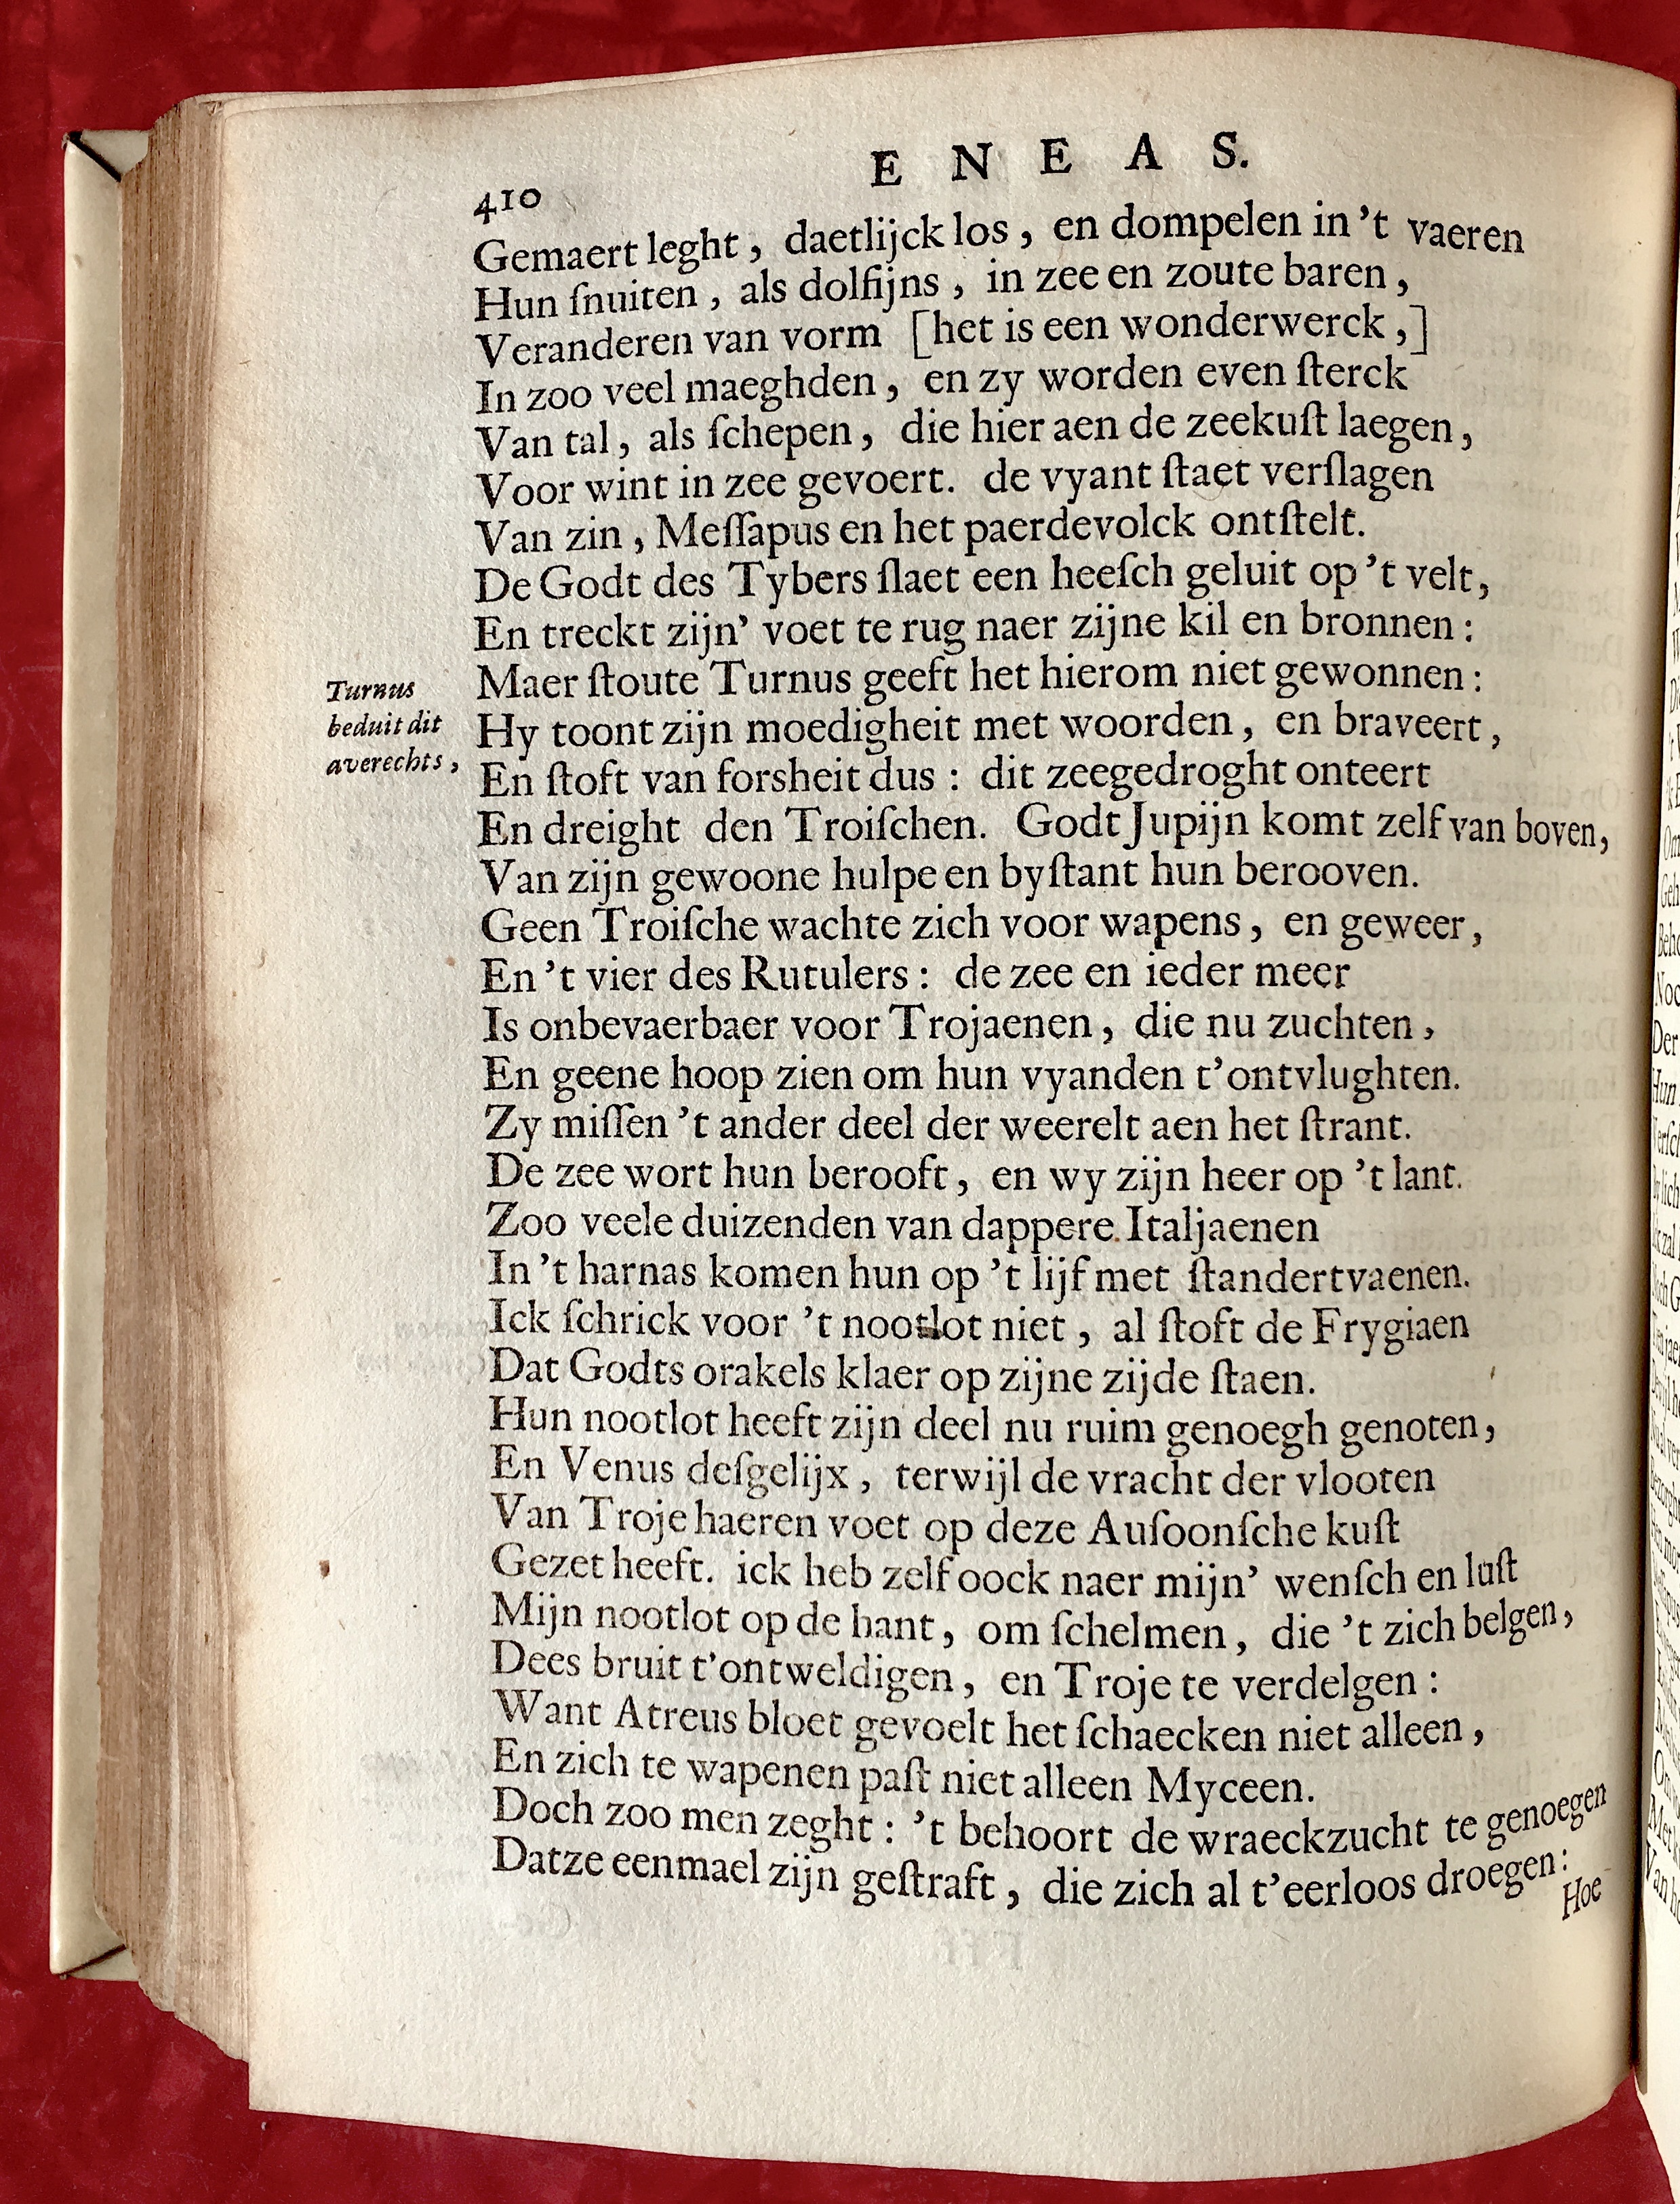 410
E N E A S.
Gemaert leght, daetlijck los, en dompelen in 't vaeren
Hun ſnuiten, als dolfijns, in zee en zoute baren,
Veranderen van vorm [het is een wonderwerck,]
In zoo veel maeghden, en zy worden even ſterck
Van tal, als ſchepen, die hier aen de zeekuſt laegen,
Voor wint in zee gevoert. de vyant ſtaet verſlagen
Van zin, Meſſapus en het paerdevolck ontſtelt.
De Godt des Tybers ſlaet een heeſch geluit op 't velt,
En treckt zijn' voet te rug naer zijne kil en bronnen:
Maer ſtoute Turnus geeft het hierom niet gewonnen:
Hy toont zijn moedigheit met woorden, en braveert,
En ſtoft van forsheit dus: dit zeegedroght onteert
En dreight den Troiſchen. Godt Jupijn komt zelf van boven,
Van zijn gewoone hulpe en byſtant hun berooven.
Geen Troiſche wachte zich voor wapens, en geweer,
En 't vier des Rutulers: de zee en ieder meer
Is onbevaerbaer voor Trojaenen, die nu zuchten,
En geene hoop zien om hun vyanden t'ontvlughten.
Zy miſſen 't ander deel der weerelt aen het ſtrant.
De zee wort hun berooft, en wy zijn heer op 't lant.
Zoo veele duizenden van dappere Italjaenen
In 't harnas komen hun op 't lijf met ſtandertvaenen.
Ick ſchrick voor 't nootlot niet, al ſtoft de Frygiaen
Dat Godts orakels klaer op zijne zijde ſtaen.
Hun nootlot heeft zijn deel nu ruim genoegh genoten,
En Venus deſgelijx, terwijl de vracht der vlooten
Van Troje haeren voet op deze Auſoonſche kuſt
Gezet heeft. ick heb zelf oock naer mijn' wenſch en luſt
Mijn nootlot op de hant, om ſchelmen, die 't zich belgen,
Dees bruit t'ontweldigen, en Troje te verdelgen:
Want Atreus bloet gevoelt het ſchaecken niet alleen,
En zich te wapenen paſt niet alleen Myceen.
Doch zoo men zeght: 't behoort de wraeckzucht te genoegen
Datze eenmael zijn geſtraft, die zich al t'eerloos droegen:
Hoe
Turnus
beduit dit
averechts,